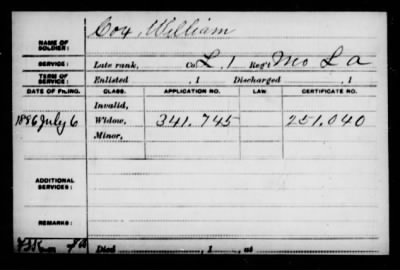 NAME OF SOLDIER: Cox, William
SERVICE: Late rank, Co. L, 1 Reg't Mo L A
TERM OF SERVICE: Enlisted , 1 Discharged , 1
DATE OF FILING. CLASS. APPLICATION NO. LAW. CERTIFICATE NO.
Invalid,
1886 July 6 Widow, 341.745 251.040
Minor,
ADDITIONAL SERVICES:
REMARKS:
Died , 1 , at